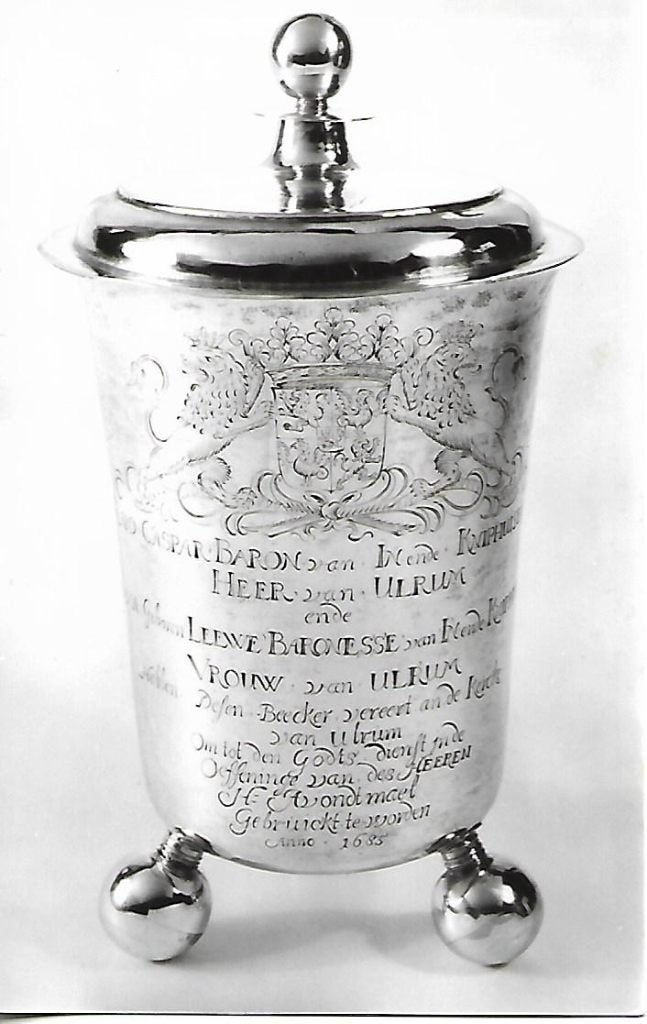 CASPAR · BARON van · IN ende · KNIPHUI
HEER · van · ULRUM
ende
Geboren LEEWE BARONESSE van IN ende KNIP
VROUW · van ULRUM
Hebben Desen Beecker vereert an de Kercke
van Ulrum
Om tot den Godts dienst in de
Oeffeninge van des HEEREN
H: Avondtmael
Gebruickt te worden
Anno · 1685